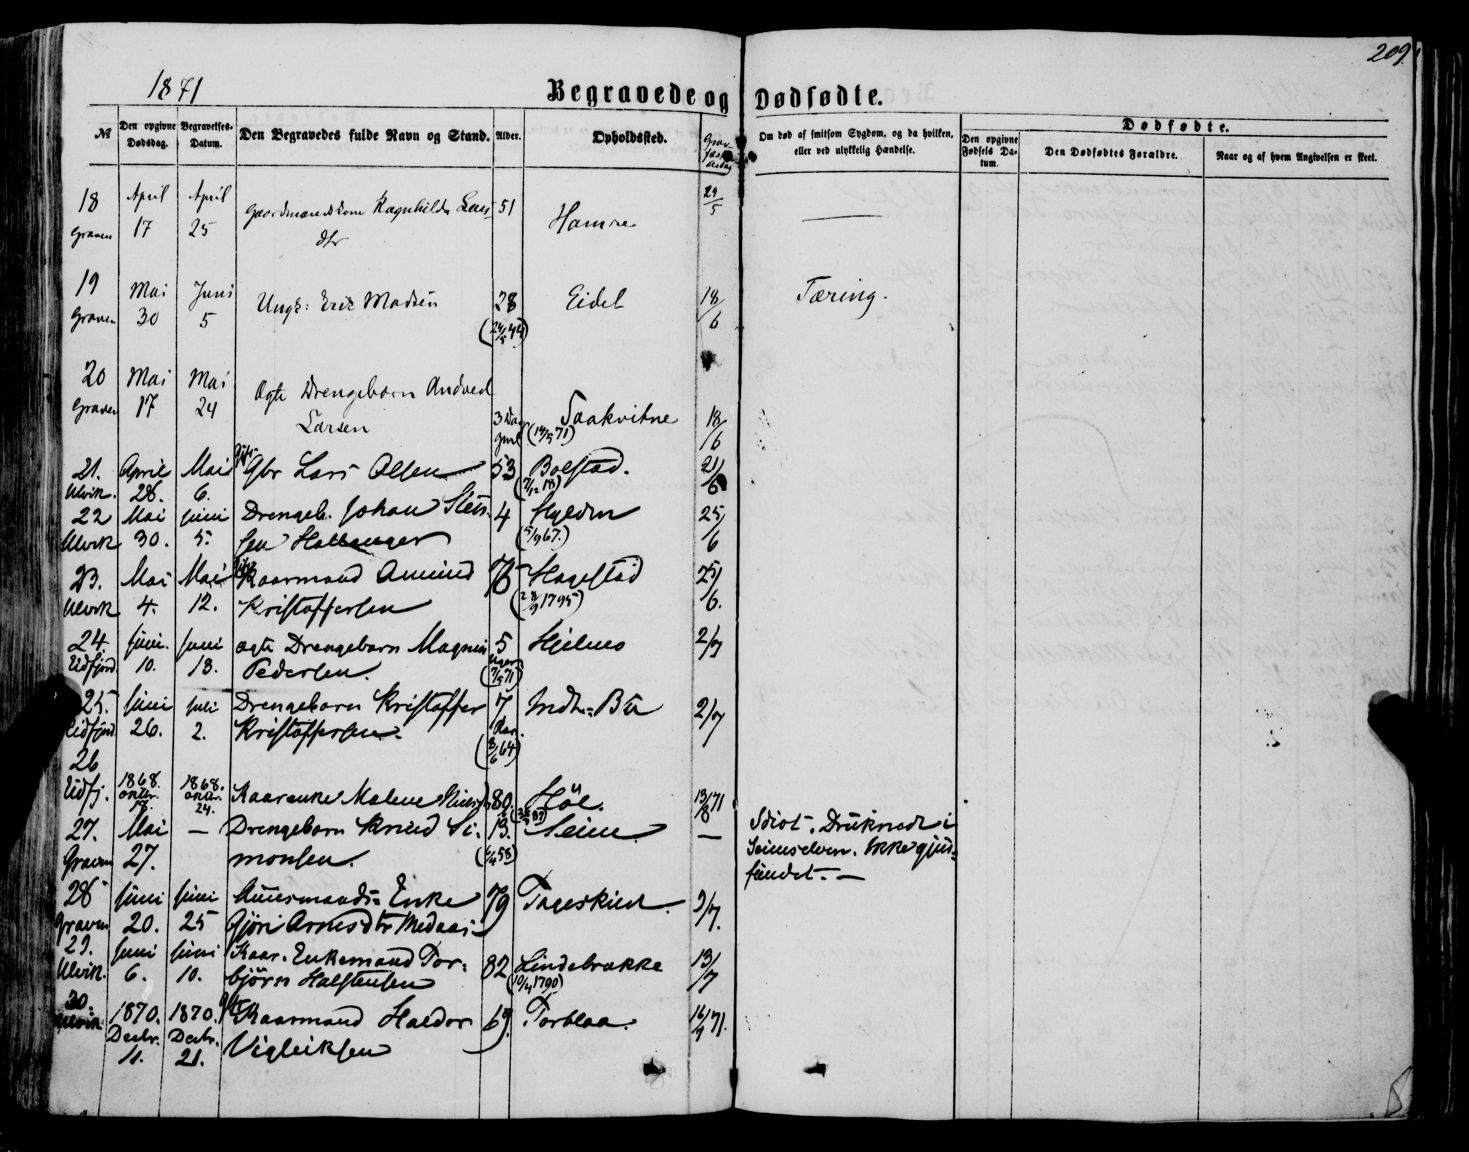 1871
209.
Begravede og Dødfødte.
№ Den opgivne Dødsdag. Begravelses-Datum. Den Begravedes fulde Navn og Stand. Alder. Opholdssted. Om død af smitsom Sygdom, og da hvilken, eller ved ulykkelig Hændelse.
Dødfødte.
Den opgivne Fødsels Datum. Den Dødfødtes Forældre. Naar og af hvem Angivelsen er skeet.
18 April April Gaardmandskone Ragnhilde Lars 51 Hamre 29/5 —
Graven 17 25 dtr
19 Mai Juni Ungk: Erik Madsen 28 Eidet 18/6 Tæring.
Graven 30 5 (24/5 44)
20 Mai Mai Ægte Drengebarn Andved
Graven 17 24 Larsen 3 Dage gml Saakvitne (14/5 71) 18/6
21. April Mai Gift Gbr Lars Olsen 53 Bolstad. 21/6
Ulvik. 28. 6. (7/12 18)
22 Mai Juni Drengeb. Johan Stets- 4 Hylden 25/6
Ulvik 30. 5. sen Hallanger (5/9 67.)
23. Mai Mai Kaarmand Amund 76 Hagestad 25/6.
Ulvik 4. 12. Kristoffersen (28/9 1795)
24. Juni. Juni ægte Drengebarn Magnus 5 Hjelmo 2/7
Eidfjord 10. 18. Pedersen. Uger (7/5 71)
25. Juni Juli Drengebarn Kristoffer 7 Indre Bu 2/7
Eidfjord 26. 2. Kristoffersen. Aar. (8/6 64)
26 1868. 1868.
Eidfj. Oktbr. 18. Oktbr. 24. Kaarenke Malene 80. Høl. 13/8 71
27. Mai — Drengebarn Knud Si- 13. Seim — Idiot. Druknede i
Graven 27. monsen. (6/4 58) Seimselven. Ikke gjen-
fundet. —
28 Juni Juni Huusmands-Enke 79 Tageskied. 9/7.
Graven 20. 25 Gjøri Arnesdtr Medaas
29. Juni Juni Kaar. Enkemand Tor- 82 Lindebrække 13/7
Ulvik. 6. 10. bjørn Halstensen (10/4 1790)
30. 1870. 1870. gift Kaarmand Haldor 69. Torblaa. 16/7 71.
Ulvik Decbr. 11. Decbr. 21. Vigleiksen